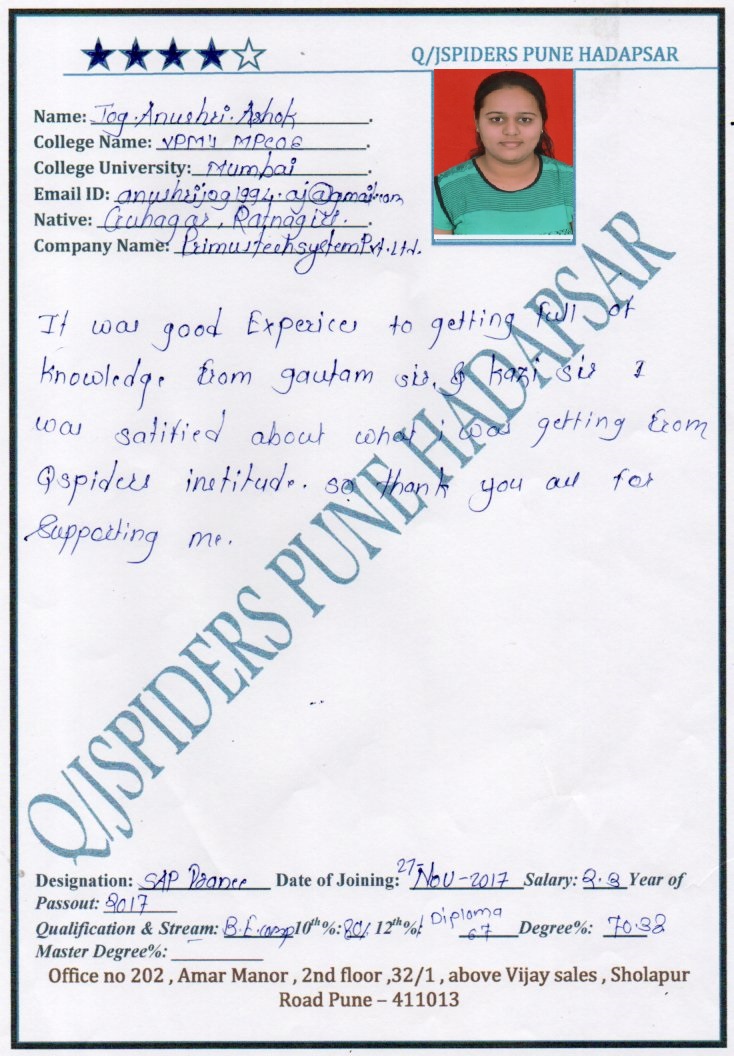 Q/JSPIDERS PUNE HADAPSAR
Name: Jog. Anushri. Ashok.
College Name: VPM's MPCOE.
College University: Mumbai.
Email ID: anushrijog1994.aj@gmail.com
Native: Guhagar, Ratnagiri.
Company Name: Primustechsystem Pvt. Ltd.
It was good Experices to getting full of
knowledge from gautam sir, & kazi sir I
was satified about what i was getting from
Qspiders institude. so thank you all for
Supporting me.
Q/JSPIDERS PUNE HADAPSAR
Designation: SAP Date of Joining: 27 Nov-2017 Salary: 2.2 Year of
Passout: 2017
Qualification & Stream: B.E.comp 10th%: 80% 12th%: Diploma 67 Degree%: 70.32
Master Degree%:
Office no 202 , Amar Manor , 2nd floor ,32/1 , above Vijay sales , Sholapur
Road Pune – 411013